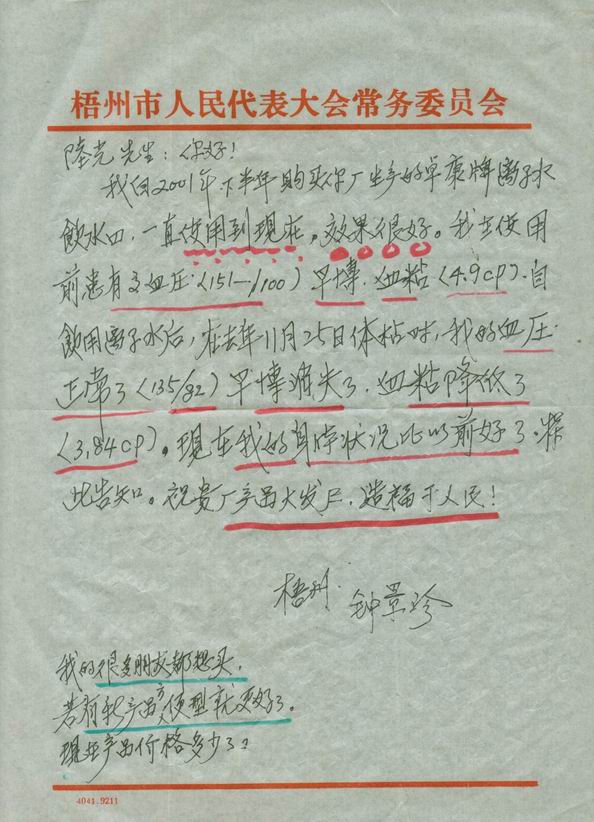 梧州市人民代表大会常务委员会
陆光先生：你好！
我自2001年下半年购买你厂生产的卓康牌离子水
飲水口，一直使用到现在。效果很好。我在使用
前患有高血压（151—/100）早博，血粘（4.9cp）.自
飲用离子水后，在去年11月25日体检时，我的血压
正常了（135/82）早博消失了，血粘降低了
（3.84cp）。现在我的身体状况比以前好了，特
此告知。祝贵厂产品大发展，造福于人民！
梧州 钟景珍
我的很多朋友都想买，
若有新产品方便型就更好了。
现在产品价格多少了？
4041.9211